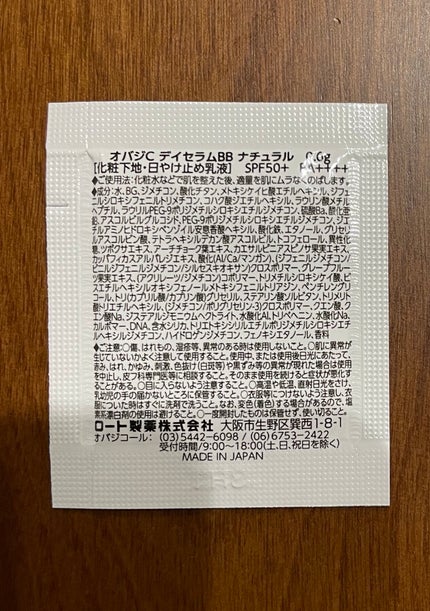 オバジC デイセラムBB ナチュラル 0.6g
[化粧下地・日やけ止め乳液] SPF50+ PA++++
◆ご使用法:化粧水などで肌を整えた後、適量を肌にムラなくのばします。
◆成分:水、BG、ジメチコン、酸化チタン、メトキシケイヒ酸エチルヘキシル、ジフェ
ニルシロキシフェニルトリメチコン、コハク酸ジエチルヘキシル、ラウリン酸メチル
ヘプチル、ラウリルPEG-9ポリジメチルシロキシエチルジメチコン、硫酸Ba、酸化亜
鉛、アスコルビルグルコシド、PEG-9ポリジメチルシロキシエチルジメチコン、ジエ
チルアミノヒドロキシベンゾイル安息香酸ヘキシル、酸化鉄、エタノール、グリセリ
ルアスコルビン酸、テトラヘキシルデカン酸アスコルビル、トコフェロール、異性化
糖、ツボクサエキス、アーチチョーク葉エキス、カエサルピニアスピノサ果実エキス、
カッパフィカスアルバレジエキス、酸化(Al/Ca/マンガン)、(ジフェニルジメチコン/
ビニルジフェニルジメチコン/シルセスキオキサン)クロスポリマー、グレープフルー
ツ果実エキス、(アクリレーツ/ジメチコン)コポリマー、トリメチルシロキシケイ酸、ビ
スエチルヘキシルオキシフェノールメトキシフェニルトリアジン、ペンチレングリ
コール、トリ(カプリル酸/カプリン酸)グリセリル、ステアリン酸ソルビタン、トリメリト
酸トリエチルヘキシル、(ジメチコン/ポリグリセリン-3)クロスポリマー、クエン酸、ク
エン酸Na、ジステアルジモニウムヘクトライト、水酸化Al、トリベヘニン、水酸化Na、
カルボマー、DNA、含水シリカ、トリエトキシシリルエチルポリジメチルシロキシエチ
ルヘキシルジメチコン、ハイドロゲンジメチコン、フェノキシエタノール、香料
◆ご注意:○傷、はれもの、湿疹等、異常のある時は使用しないこと。○肌に異常が
生じていないかよく注意して使用すること。使用中、または使用後日光にあたって、
赤み、はれ、かゆみ、刺激、色抜け(白斑等)や黒ずみ等の異常が現れた場合は使用
を中止し、皮フ科専門医等に相談すること。そのまま使用を続けると症状が悪化す
ることがある。○目に入らないよう注意すること。○高温や低温、直射日光をさけ、
乳幼児の手の届かないところに保管すること。○衣服等につけないよう注意し、衣
服についた時はすぐに洗剤で洗うこと。なお、変色(着色)する場合があるので、塩
素系漂白剤の使用は避けること。○一度開封したものは保管せず、使い切ること。
ロート製薬株式会社 大阪市生野区巽西1-8-1
オバジコール:(03)5442-6098/(06)6753-2422
受付時間/9:00~18:00(土、日、祝日を除く)
MADE IN JAPAN